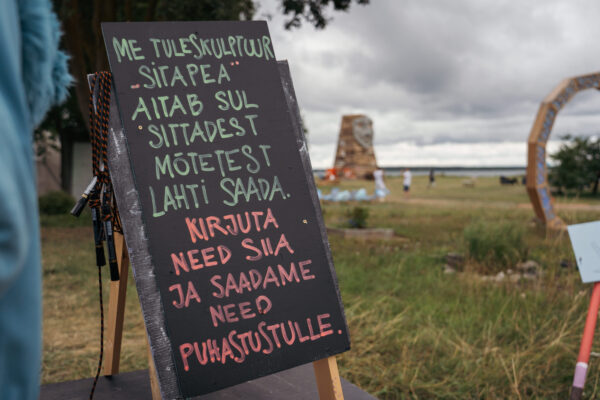 ME TULESKULPTUUR
„SITAPEA"
AITAB SUL
SITTADEST
MÕTETEST
LAHTI SAADA.
KIRJUTA
NEED SIIA
JA SAADAME
NEED
PUHASTUSTULLE.